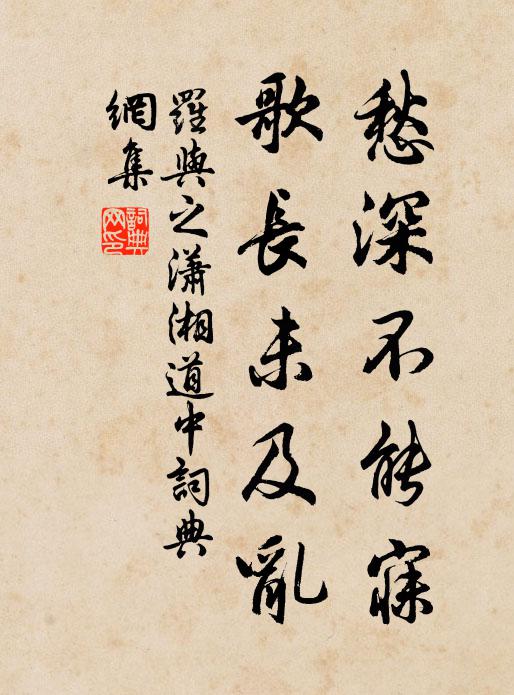 愁深不能寐
歌長未及亂
羅與之瀟湘道中詞典
網集
詞典
网印